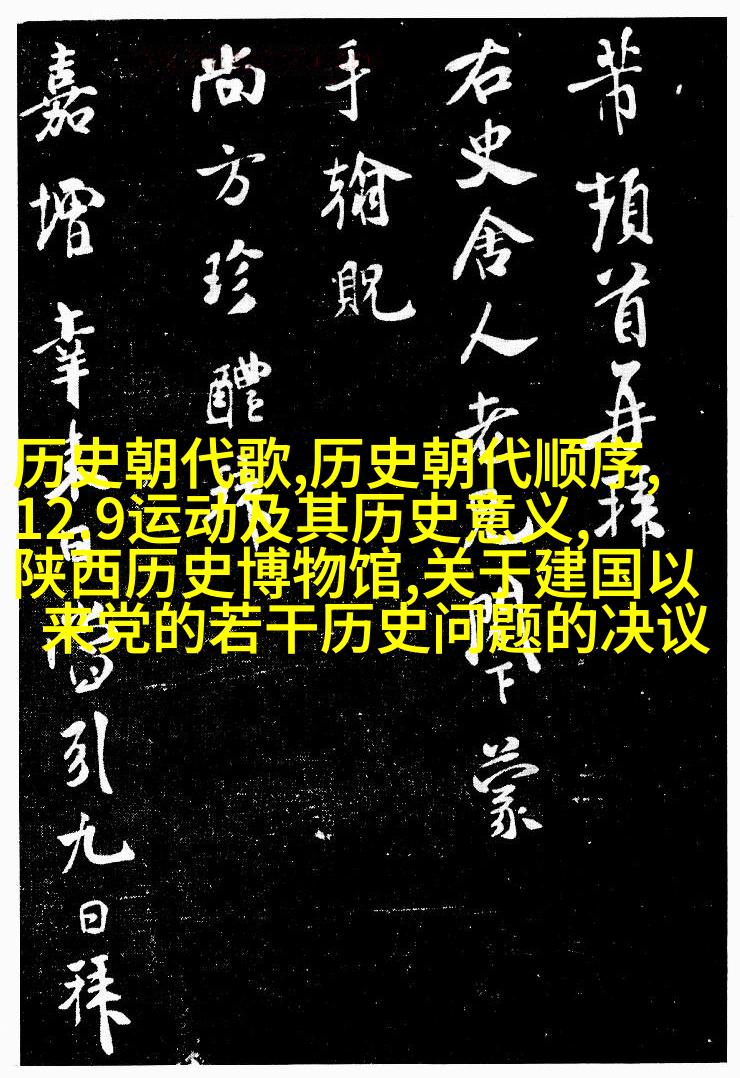 芾頓首再拜
右史舍人老兄閣下蒙
手翰貺
尚方珍醴
嘉增幸来日當引九日拜
历史朝代歌,历史朝代顺序,
12 9运动及其历史意义,
陕西历史博物馆,关于建国以
来党的若干历史问题的决议